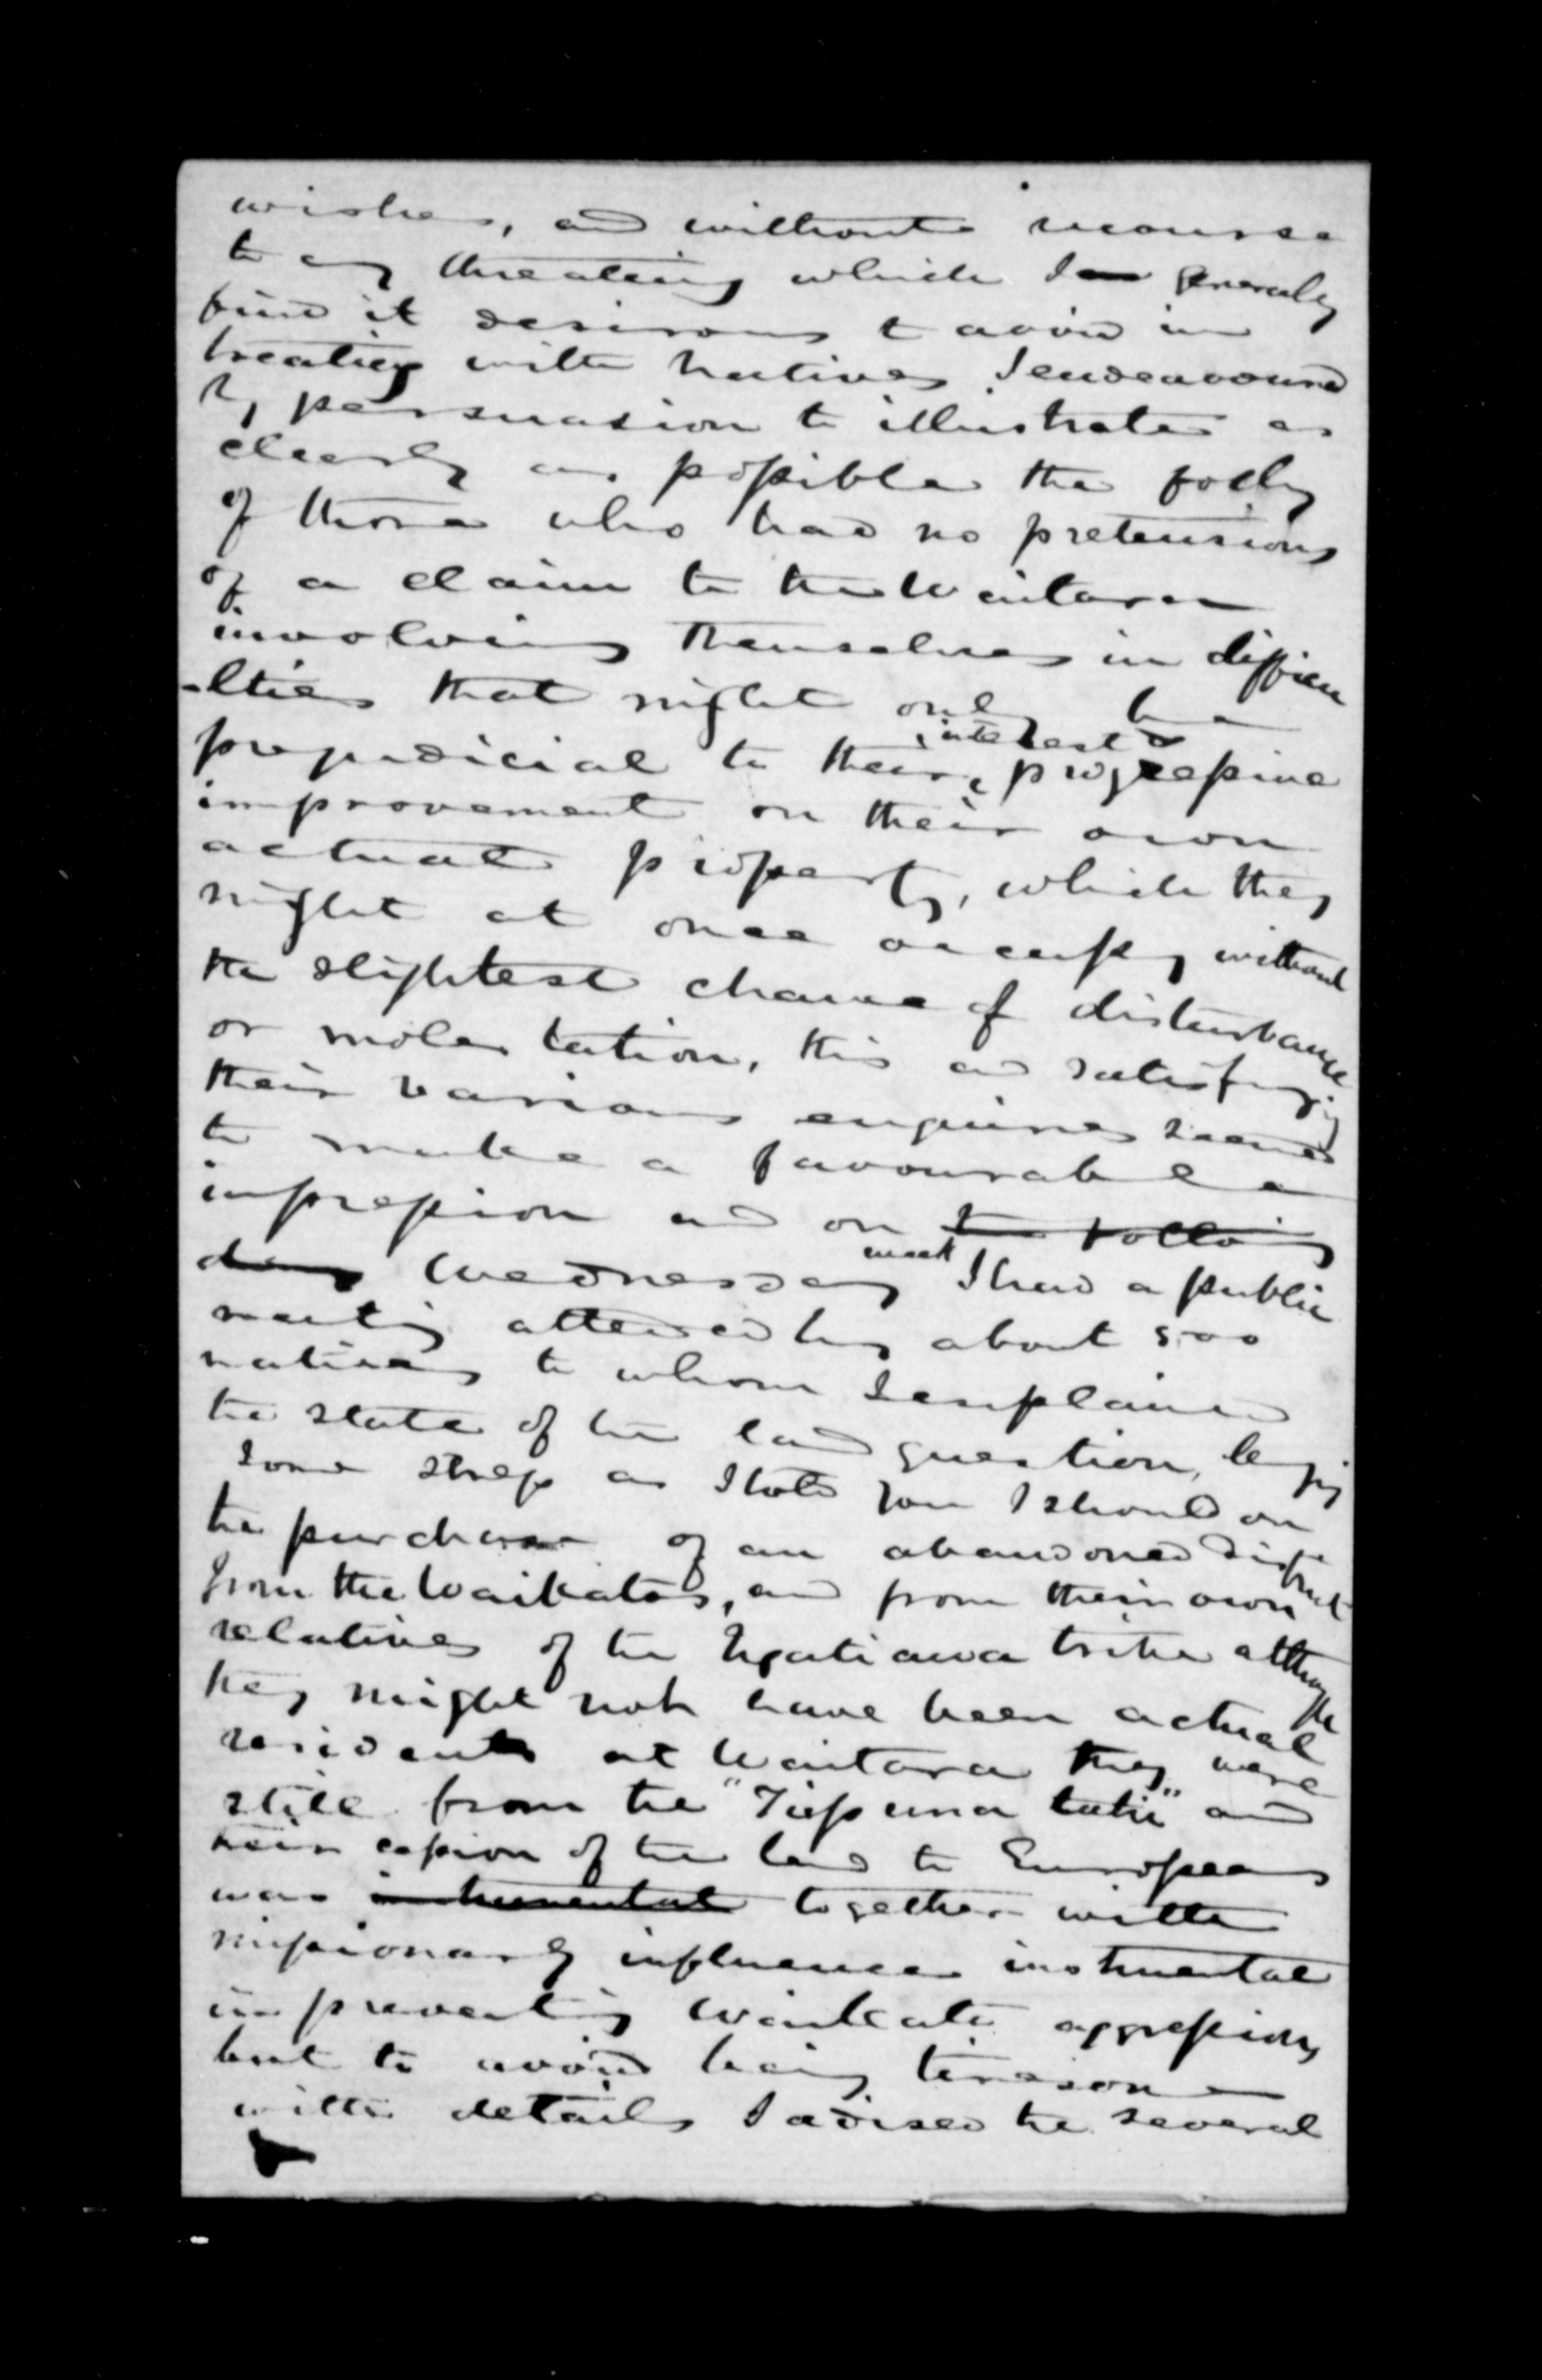 wishes, and without recourse
to any threatening which I generally
find it desirous to avoid in
treating with Natives I endeavoured
by persuasion to illustrate as
clearly as possible the folly
of those who had no pretensions
of a claim to the Waitara
involving themselves in difficu
-lties that might only be
prejudicial to their interest & progressive
improvement on their own
actual property, which they
might at once occupy without
the slightest chance of disturbance
or molestation, this and satisfying
their various enquiries seemed
to make a favourable
impression and on the following
day Wednesday I had a public
meeting attended by about 500
natives to whom I explained
the state of the land question, laying
some stress as I told you I should on
the purchase of an abandoned district
from the Waikatos, and from their own
relatives of the Ngatiawa tribe although
they might not have been actual
residents at Waitara they were
still from the "Tupuna tahi" and
their cession of the land to Europeans
was instrumental together with
missionary influence instrumental
in preventing Waikato aggression,
but to avoid being tiresome
with details I advised the several